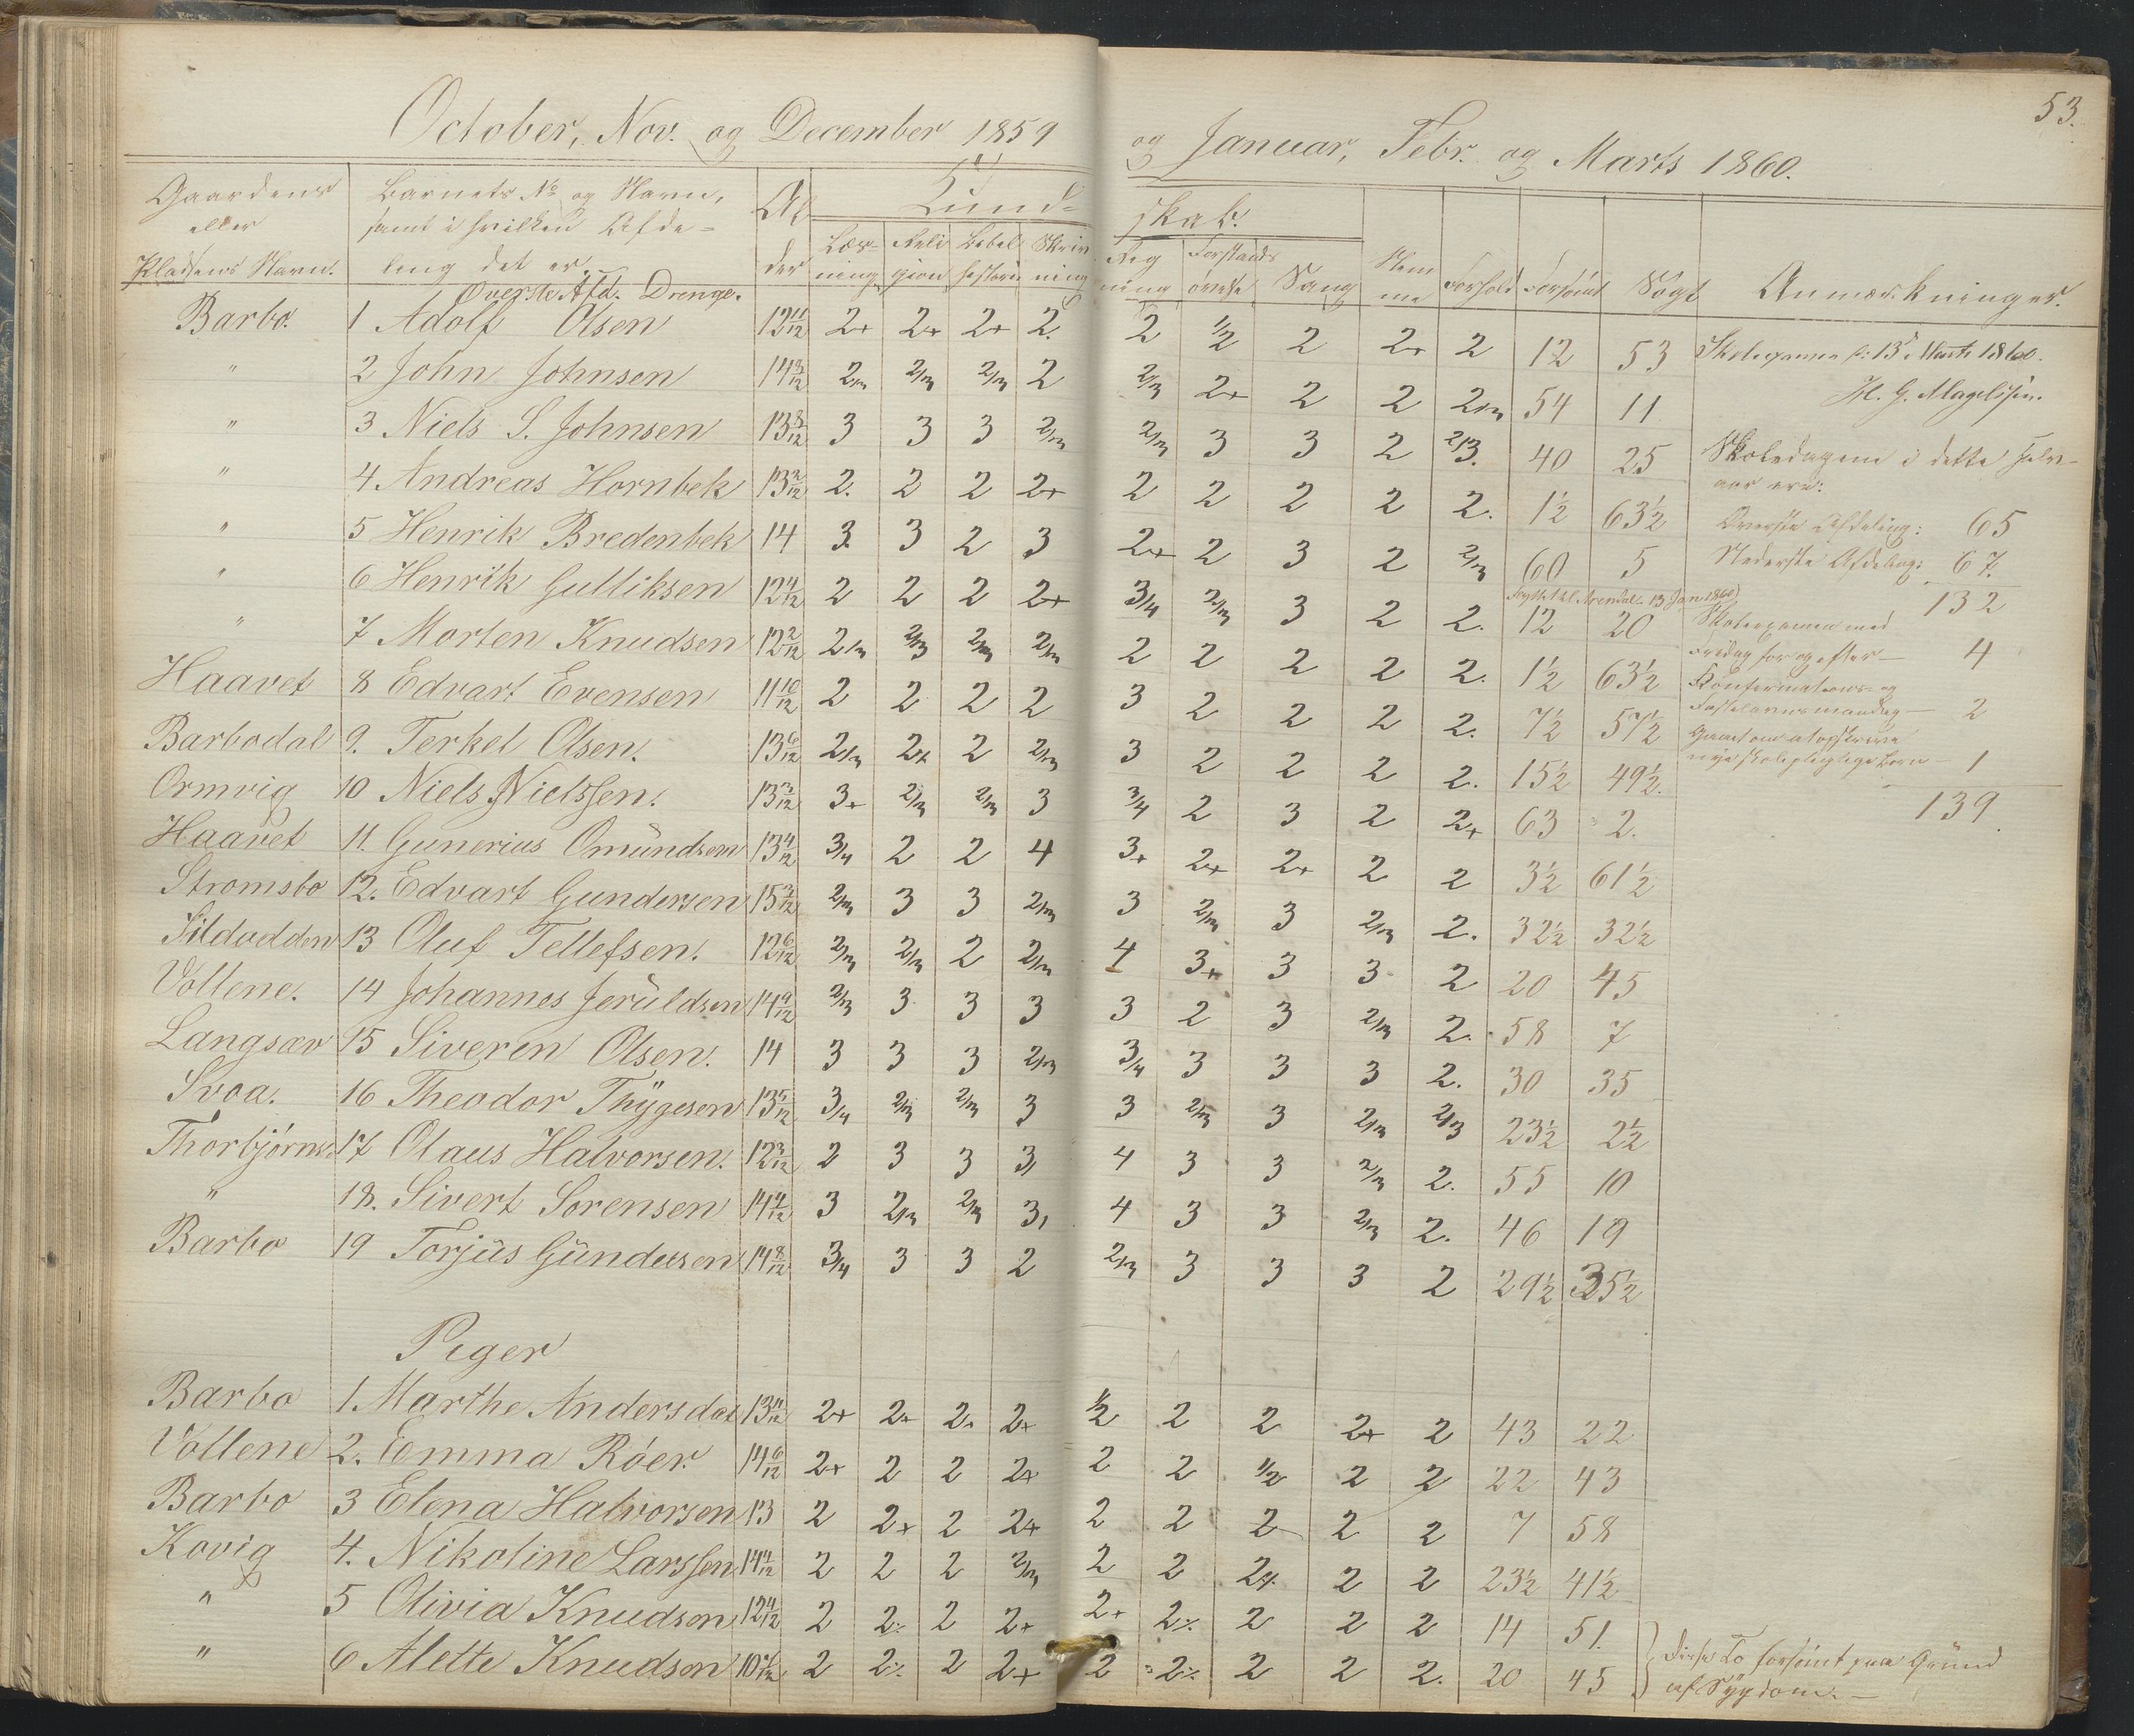 53.
October, Nov. og December 1859 og Januar, Febr. og Marts 1860.
Gaardens eller Pladsens Navn. Barnets No og Navn, samt i hvilken Afdeling det er. Alder Kundskab. Læsning Religion Bibelhistorie Skrivning Regning Forstandsøvelse Sang Nemme Forhold Forsömt Sögt Anmærkninger.
Overste Afd. Drenge.
Barbo. 1 Adolf Olsen 12 11/12 2+ 2+ 2+ 2. 2 1/2 2 2+ 2 12 53
" 2 John Johnsen 14 3/12 2/3 2/3 2/3 2 2/3 2+ 2 2 2/3 54 11
" 3 Niels S. Johnsen 13 8/12 3 3 3 2/3 2/3 3 3 2 2/3. 40 25
" 4 Andreas Hornbek 13 2/12 2. 2 2 2+ 2 2 2 2 2. 1½ 63½
" 5 Henrik Bredenbek 14 3. 3 2 3 2+ 2 3 2 2/3 60 5
Flyttet til Arendal 13 Jan 1860
" 6 Henrik Gulliksen 12 4/12 2 2 2 2+ 3/4 2/3 3 2 2. 12 20
" 7 Morten Knudsen 12 2/12 2/3 2/3 2/3 2/3 2 2 2 2 2. 1½ 63½
Haavet 8 Edvart Evensen 11 10/12 2 2 2 2 3 2 2 2 2. 7½ 57½
Barbodal 9. Terkel Olsen. 13 6/12 2/3 2+ 2 2/3 3 2 2 2 2. 15½ 49½.
Ormvig 10 Niels Nielssen. 13 3/12 3+ 2/3 2/3 3 3/4 2 3 2 2+ 63 2.
Haavet 11. Gunerius Omündsen 13 4/12 3/4 2 2 4 3+ 2+ 2+ 2 2 3½ 61½
Stromsbo 12. Edvart Gundersen 15 3/12 2/3 3 3 2/3 3 2/3 3 2/3 2. 32½ 32½
Sildodden 13 Oluf Tellefsen. 12 6/12 2/3 2/3 2 2/3 4 3+ 3 3 2 20 45
Vollene. 14 Johannes Jerüldsen 14 9/12 2/3 3 3 3 3 2 3 2/3 2. 58 7
Langsæv 15 Siveren Olsen. 14 3 3 3 2/3 3/4 3 3 3 2. 30 35
Svoa. 16 Theodor Thygesen 13 5/12 3/4 2/3 2/3 3 3 2/3 3 2/3 2/3 23½ 2½
Thorbjörns 17 Olaus Halvorsen. 12 3/12 2 3 3 3 4 3 3 2/3 2. 55 10
" 18. Sivert Sorensen 14 4/12 3 2/3 2/3 3 4 3 3 2/3 2. 46 19
Barbo 19 Torjüs Gündersen 14 8/12 3/4 3 3 2 2/3 3 3 3 2 29½ 35½
Piger
Barbo 1. Marthe Andersdat 13 11/12 2+ 2+ 2+ 2+ 1/2 2 2 2+ 2 43 22
Vollene 2. Emma Röer. 14 6/12 2+ 2 2 2+ 2 2 1/2 2 2 22 43
Barbo 3 Elena Halvorsen 13 2 2+ 2 2+ 2 2 2 2 2 7 58
Kovig 4. Nikoline Larssen 14 4/12 2 2 2 2/3 2 2 2+. 2 2 23½ 41½
" 5 Olivia Knudsen 12 4/12 2 2+ 2 2+ 2+ 2+ 2 2 2 14 51.
" 6 Alette Knudsen 2 2+ 2 2+ 2 2+ 2 2 2. 20 45
Skoleexamen d: 13de Marts 1860.
H. G. Magelssen.
Skoledagene i dette Halv-
aar ere:
Överste Afdeling: 65
Nederste Afdeling: 67.
132
Skoleexamen med
Fridag for og efter — 4
Konfirmations- og
Fastelavnsmandag — 2
Gaaet om at opskrive
nye skolepligtige Börn — 1
139.
Disse To forsömt paa Gründ
af Sygdom. —